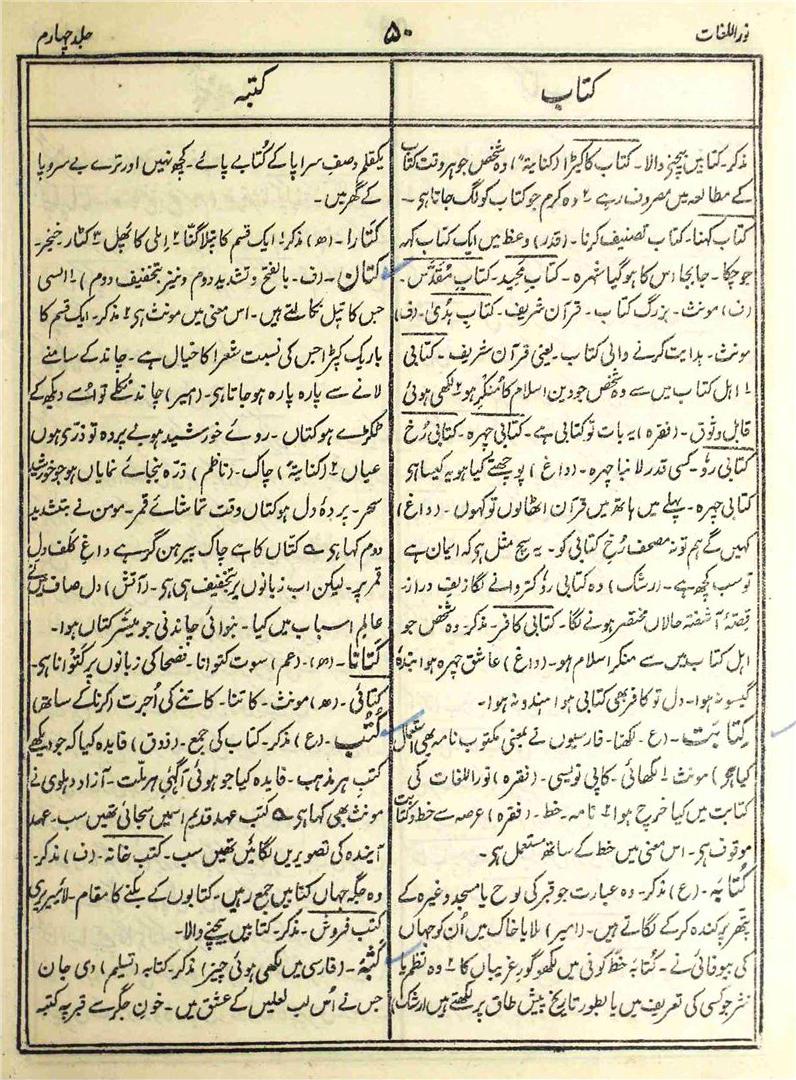 نور اللغات
۵۰
جلد چہارم
کتاب
کتبہ
مذکر۔ کتابیں بیچنے والا۔ کتاب کا کیڑا (کنایۃً) وہ شخص جو ہر وقت کتاب
کے مطالعہ میں مصروف رہے ۲ وہ کرم جو کتاب کو لگ جاتا ہی۔
کتاب کہنا۔ کتاب تصنیف کرنا۔ (قدر) وعظ میں ایک کتاب کہہ
جو چکا۔ جابجا اس کا ہو گیا شہرہ۔ کتاب مجید۔ کتاب مُقدّس۔
(ف) مونث۔ بزرگ کتاب۔ قرآن شریف۔ کتاب ہُدیٰ۔ (ف)
مونث۔ ہدایت کرنے والی کتاب۔ یعنی قرآن شریف۔ کتابی
۱ اہل کتاب میں سے وہ شخص جو دین اسلام کا مُنکر ہو ۲ لکھی ہوئی
قابل وثوق۔ (فقرہ) یہ بات تو کتابی ہے۔ کتابی چہرہ۔ کتابی رُخ
کتابی رو۔ کسی قدر لانبا چہرہ۔ (داغ) پوچھتے کیا ہو یہ کیسا ہی
کتابی چہرہ۔ پہلے میں ہاتھ میں قرآن اٹھا لوں تو کہوں۔ (داغ)
کہیں گے ہم تو نہ مصحف رُخ کتابی کو۔ یہ سچ مثل ہی کہ ایمان ہے
تو سب کچھ ہے۔ (رشک) وہ کتابی رو کتروانے لگا زلف دراز۔
قصۂ آشفتہ حالاں مختصر ہونے لگا۔ کتابی کافر۔ مذکر۔ وہ شخص جو
اہل کتاب میں سے منکر اسلام ہو۔ (داغ) عاشق چہرہ ہوا بندۂ
گیسو نہ ہوا۔ دل تو کافر بھی کتابی ہوا ہندو نہ ہوا۔
کِتابَت۔ (ع۔ لکھنا۔ فارسیوں نے بمعنی مکتوب نامہ بھی استعمال
کیا ہے) مونث ۱ لکھائی۔ کاپی نویسی۔ (فقرہ) نور اللغات کی
کتابت میں کیا خرچ ہوا ۲ نامہ۔ خط۔ (فقرہ) عرصہ سے خط و کتابت
موقوف ہی۔ اس معنی میں خط کے ساتھ مستعمل ہی۔
کُتابَہ۔ (ع) مذکر۔ وہ عبارت جو قبر کی لوح یا مسجد وغیرہ کے
پتھر پر کندہ کر کے لگاتے ہیں۔ (امیر) ملایا خاک میں اُن کو جہاں
کی بیوفائی نے۔ کتابہ خطِ کوفی میں لکھو گور غریباں کا ۲ وہ نظم یا
نثر جو کسی کی تعریف میں یا بطور تاریخ پیش طاق پر لکھتے ہیں (رشک)
یکقلم وصف سراپا کے کُتابے پائے۔ کچھ نہیں اور ترے بے سر و پا
کے گھر میں۔
کتارا۔ (ھ) مذکر ۱ ایک قسم کا پتلا گنّا ۲ املی کا پھل ۳ کٹار۔ خنجر۔
کتان۔ (ف۔ بالفتح و تشدید دوم و نیز بتخفیف دوم)۔ ۱ السی
جس کا تیل نکالتے ہیں۔ اس معنی میں مونث ہی ۲ مذکر۔ ایک قسم کا
باریک کپڑا جس کی نسبت شعرا کا خیال ہے۔ چاند کے سامنے
لانے سے پارہ پارہ ہو جاتا ہی۔ (میر) چاند نکلے تو اُسے دیکھ کے
ٹکڑے ہو کتاں۔ روئے خورشید ہو بے پردہ تو ذرّی ہوں
عیاں ۲ (کنایۃً) چاک۔ (ناظم) ذرّہ بنجائے نمایاں ہو جو خورشید
سحر۔ پردۂ دل ہو کتاں وقت تماشائے قمر۔ مومن نے بتشدید
دوم کہا ہی ؎ کتّاں کا ہے چاک پیرہن گر ہے داغ کلف دل
قمر پر۔ لیکن اب زبانوں پر تخفیف ہی ہی۔ (آتش) دل صاف
عالم اسباب میں کیا۔ بنوائی چاندنی جو میسّر کتاں ہوا۔
کتانا۔ (ھ)۔ (عم) سوت کتوانا۔ فصحا کی زبانوں پر کتوانا ہی۔
کتائی۔ (ھ) مونث۔ کاتنا۔ کاتنے کی اُجرت (کرنا کے ساتھ)
کُتُب۔ (ع) مذکر۔ کتاب کی جمع۔ (ذوق) فایدہ کیا کہ جو دیکھے
کتب ہر مذہب۔ فایدہ کیا جو ہوئی آگہیِ ہر ملّت۔ آزاد دہلوی نے
مونث بھی کہا ہی ؎ کتب عہد قدیم اسمیں سجائی تھیں سب۔ عہد
آیندہ کی تصویریں لگائیں تھیں سب۔ کتب خانہ۔ (ف) مذکر۔
وہ جگہ جہاں کتابیں جمع رہیں۔ کتابوں کے بکنے کا مقام۔ لائبریری
کتب فروش۔ مذکر۔ کتابیں بیچنے والا۔
کَتبَہ۔ (فارسی میں لکھی ہوئی چیز) مذکر۔ کتابہ (تسلیم) دی جان
جس نے اُس لب لعلیں کے عشق میں۔ خونِ جگر سے قبر پہ کتبہ